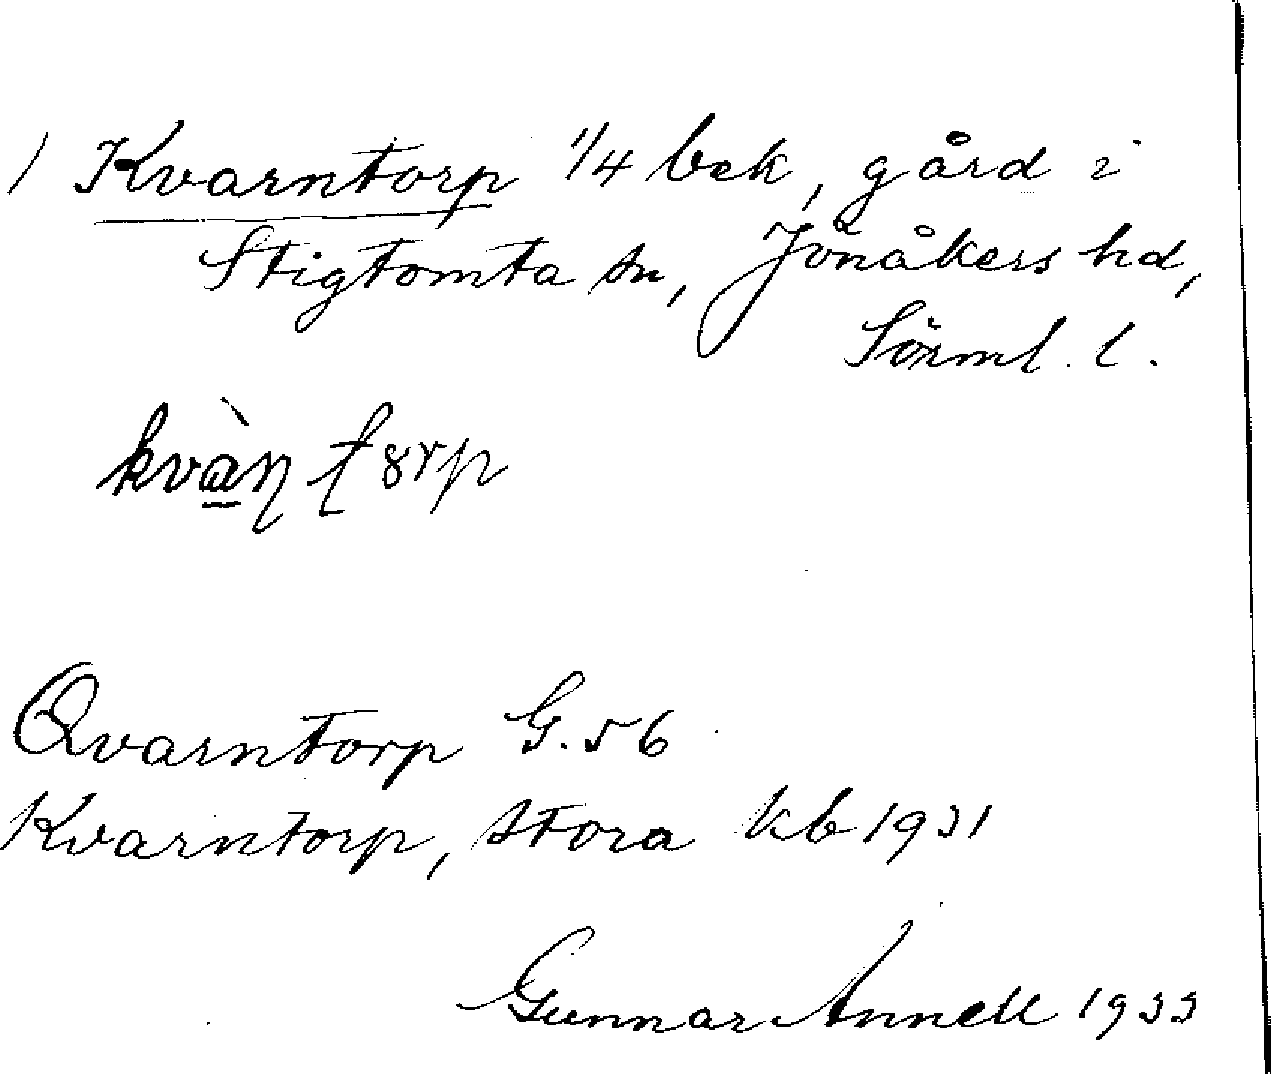 1 Kvarntorp 1/4 bek, gård i
Stigtomta sn, Jönåkers hd,
Sörml. l.
kvàṉ ƫ8rp
Qvarntorp G. 56
Kvarntorp, Stora kb 1931
Gunnar Annell 1933